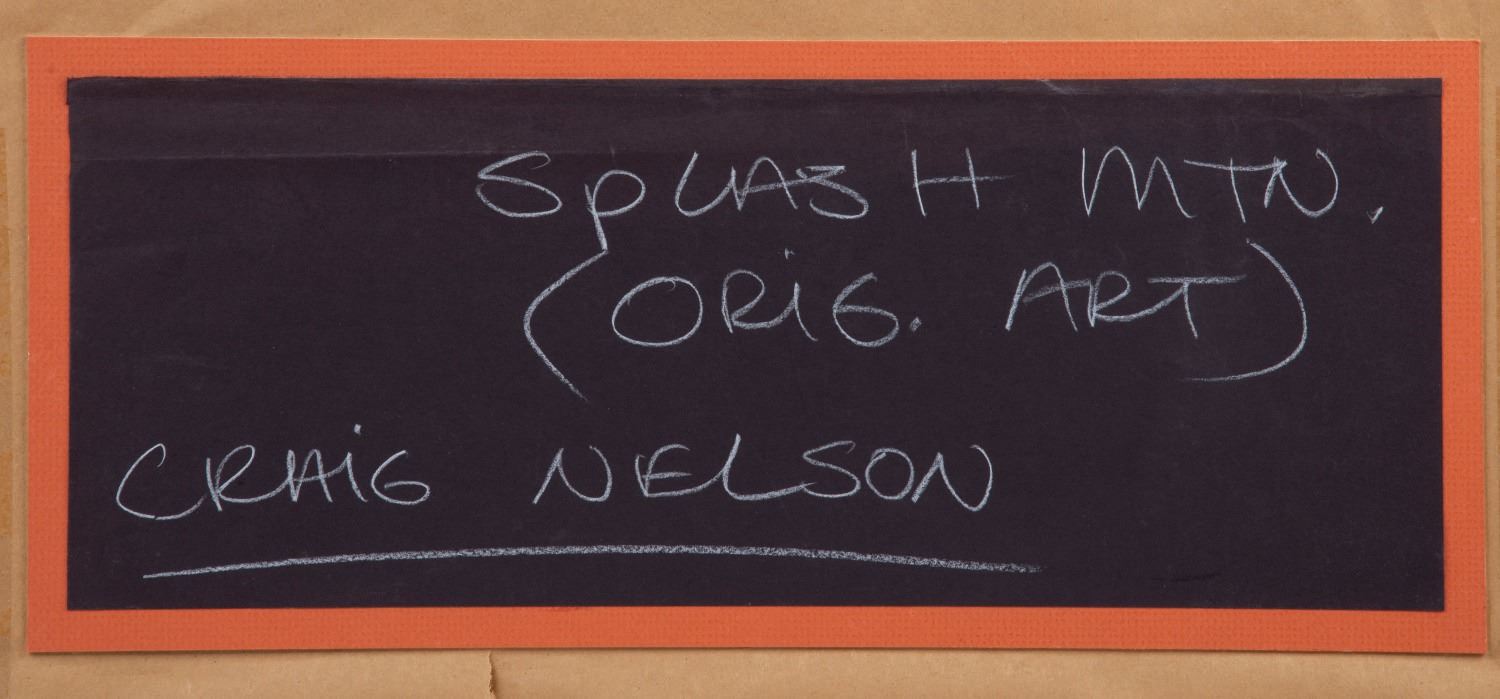 SPLASH MTN.
(ORIG. ART)
CRAIG NELSON